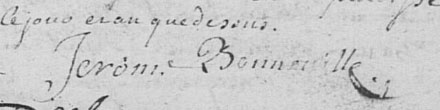 le jour et an que dessus.
Jerôme Bonneville